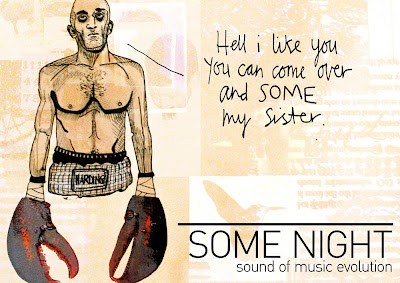 Hell i like you
You can come over
and SOME
my sister.
HARDING
SOME NIGHT
sound of music evolution